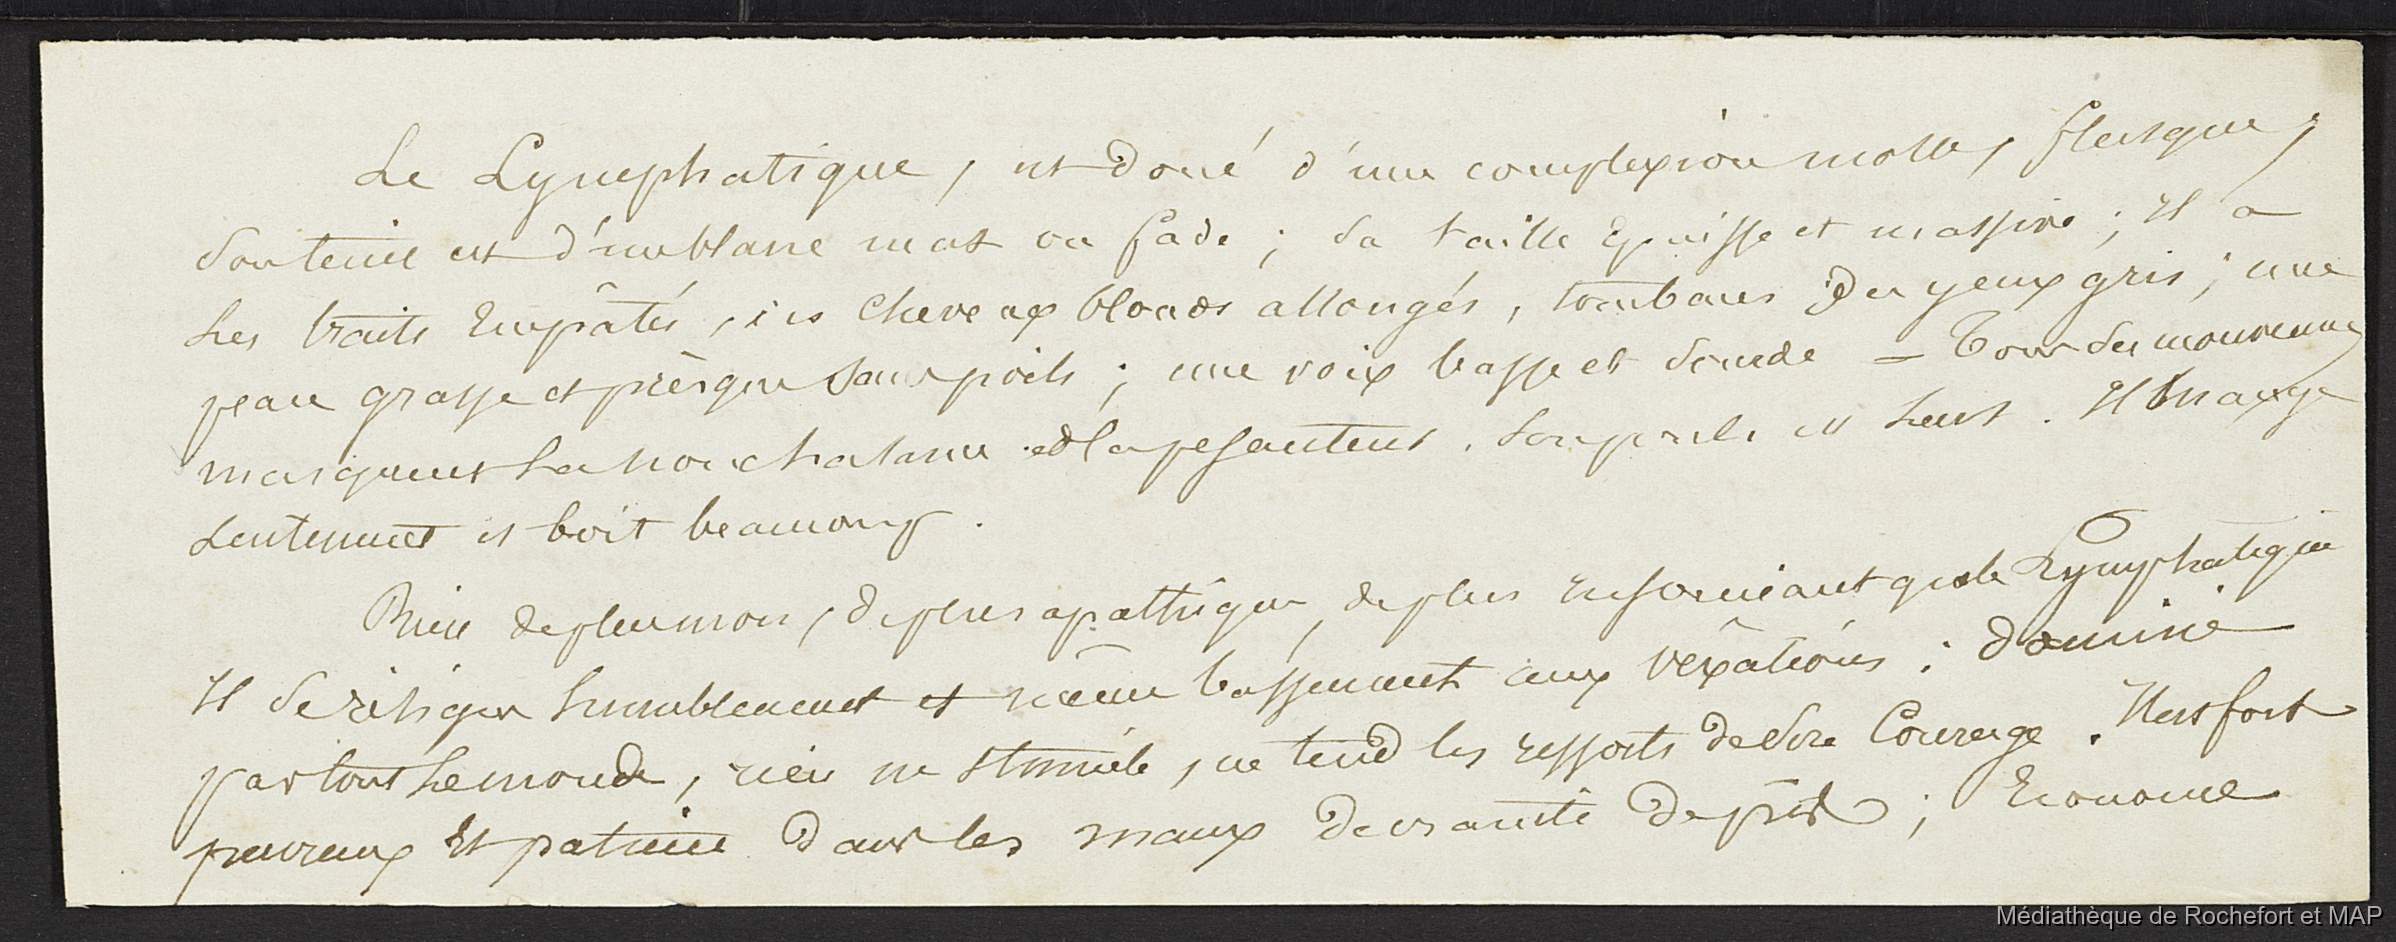 Le Lymphatique, est doué d'une complexion molle, flasque,
son teint est d'un blanc mat ou fade ; sa taille Epaisse et massive ; Il a
les traits Empâtés, les cheveux blonds allongés, tombans ; Des yeux gris ; une
peau grasse et prèsque sans poils ; une voix basse et sourde = Tous ses mouvemens
marquent la nonchalance et la pesanteur. Son pouls est lent. Il mange
lentement et boit beaucoup.
Rien de plus mou, de plus apathique, de plus insouciant que le Lymphatique
Il se résigne humblement et même bassement aux véxations ; dominé
par tout le monde, rien ne stimule, ne tend les ressorts de son Courage. Il est fort
peureux Et patient dans les maux de santé ; Econome
Médiathèque de Rochefort et MAP